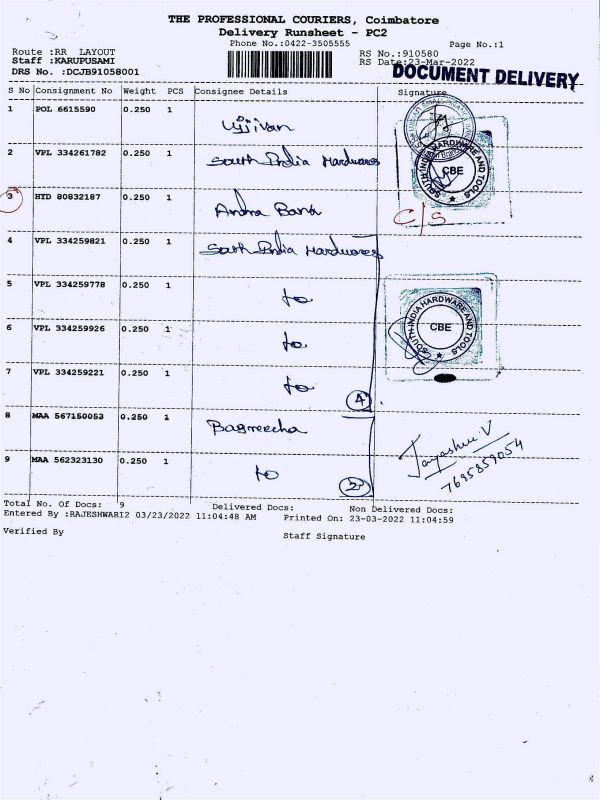 THE PROFESSIONAL COURIERS, Coimbatore
Delivery Runsheet - PC2
Phone No.:0422-3505555 Page No.:1
Route :RR LAYOUT RS No.:910580
Staff :KARUPUSAMI RS Date:23-Mar-2022
DRS No. :DCJB91058001 DOCUMENT DELIVERY
S No Consignment No Weight PCS Consignee Details Signature
1 POL 6615590 0.250 1 Ujjivan
2 VPL 334261782 0.250 1 South India Hardwares
SOUTH INDIA HARDWARE AND TOOLS CBE
3 HYD 80832187 0.250 1 Andra Bank C/S
4 VPL 334259821 0.250 1 South India Hardwares
5 VPL 334259778 0.250 1 to
6 VPL 334259926 0.250 1 to
SOUTH INDIA HARDWARE AND TOOLS CBE
7 VPL 334259221 0.250 1 to 4
8 MAA 567150053 0.250 1 Bagreecha Jayashree V
7695859054
9 MAA 562323130 0.250 1 to 2
Total No. Of Docs: 9 Delivered Docs: Non Delivered Docs:
Entered By :RAJESHWARI2 03/23/2022 11:04:48 AM Printed On: 23-03-2022 11:04:59
Verified By Staff Signature